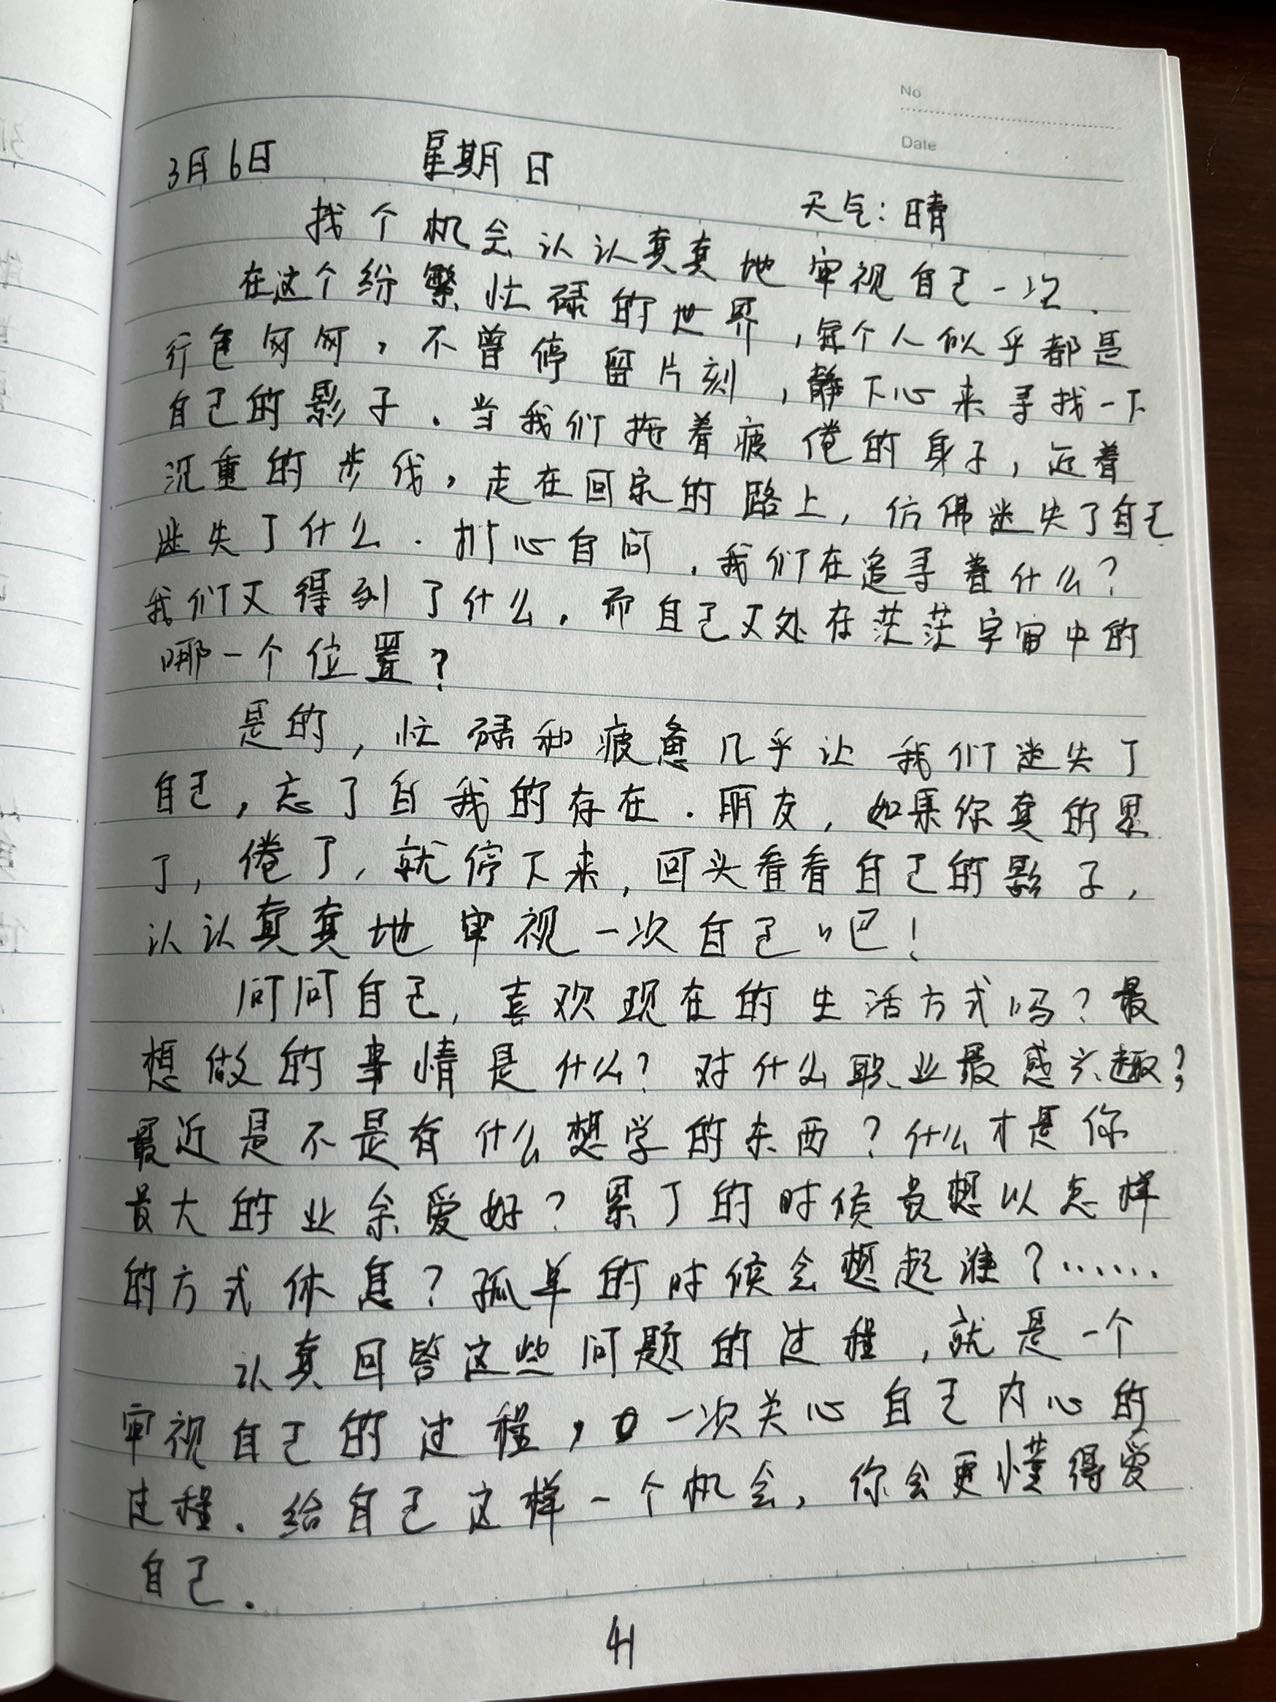 No
Date
3月6日 星期日 天气:晴
找个机会认认真真地审视自己一次.
在这个纷繁忙碌的世界,每个人似乎都是
行色匆匆,不曾停留片刻,静下心来寻找一下
自己的影子.当我们拖着疲倦的身子,迈着
沉重的步伐,走在回家的路上,仿佛迷失了自己
迷失了什么.扪心自问,我们在追寻着什么?
我们又得到了什么.而自己又处在茫茫宇宙中的
哪一个位置?
是的,忙碌和疲惫几乎让我们迷失了
自己,忘了自我的存在.朋友,如果你真的累
了,倦了,就停下来,回头看看自己的影子,
认认真真地审视一次自己吧!
问问自己,喜欢现在的生活方式吗?最
想做的事情是什么?对什么职业最感兴趣?
最近是不是有什么想学的东西?什么才是你
最大的业余爱好?累了的时候最想以怎样
的方式休息?孤单的时候会想起谁?……
认真回答这些问题的过程,就是一个
审视自己的过程,一次关心自己内心的
过程.给自己这样一个机会,你会更懂得爱
自己.
41